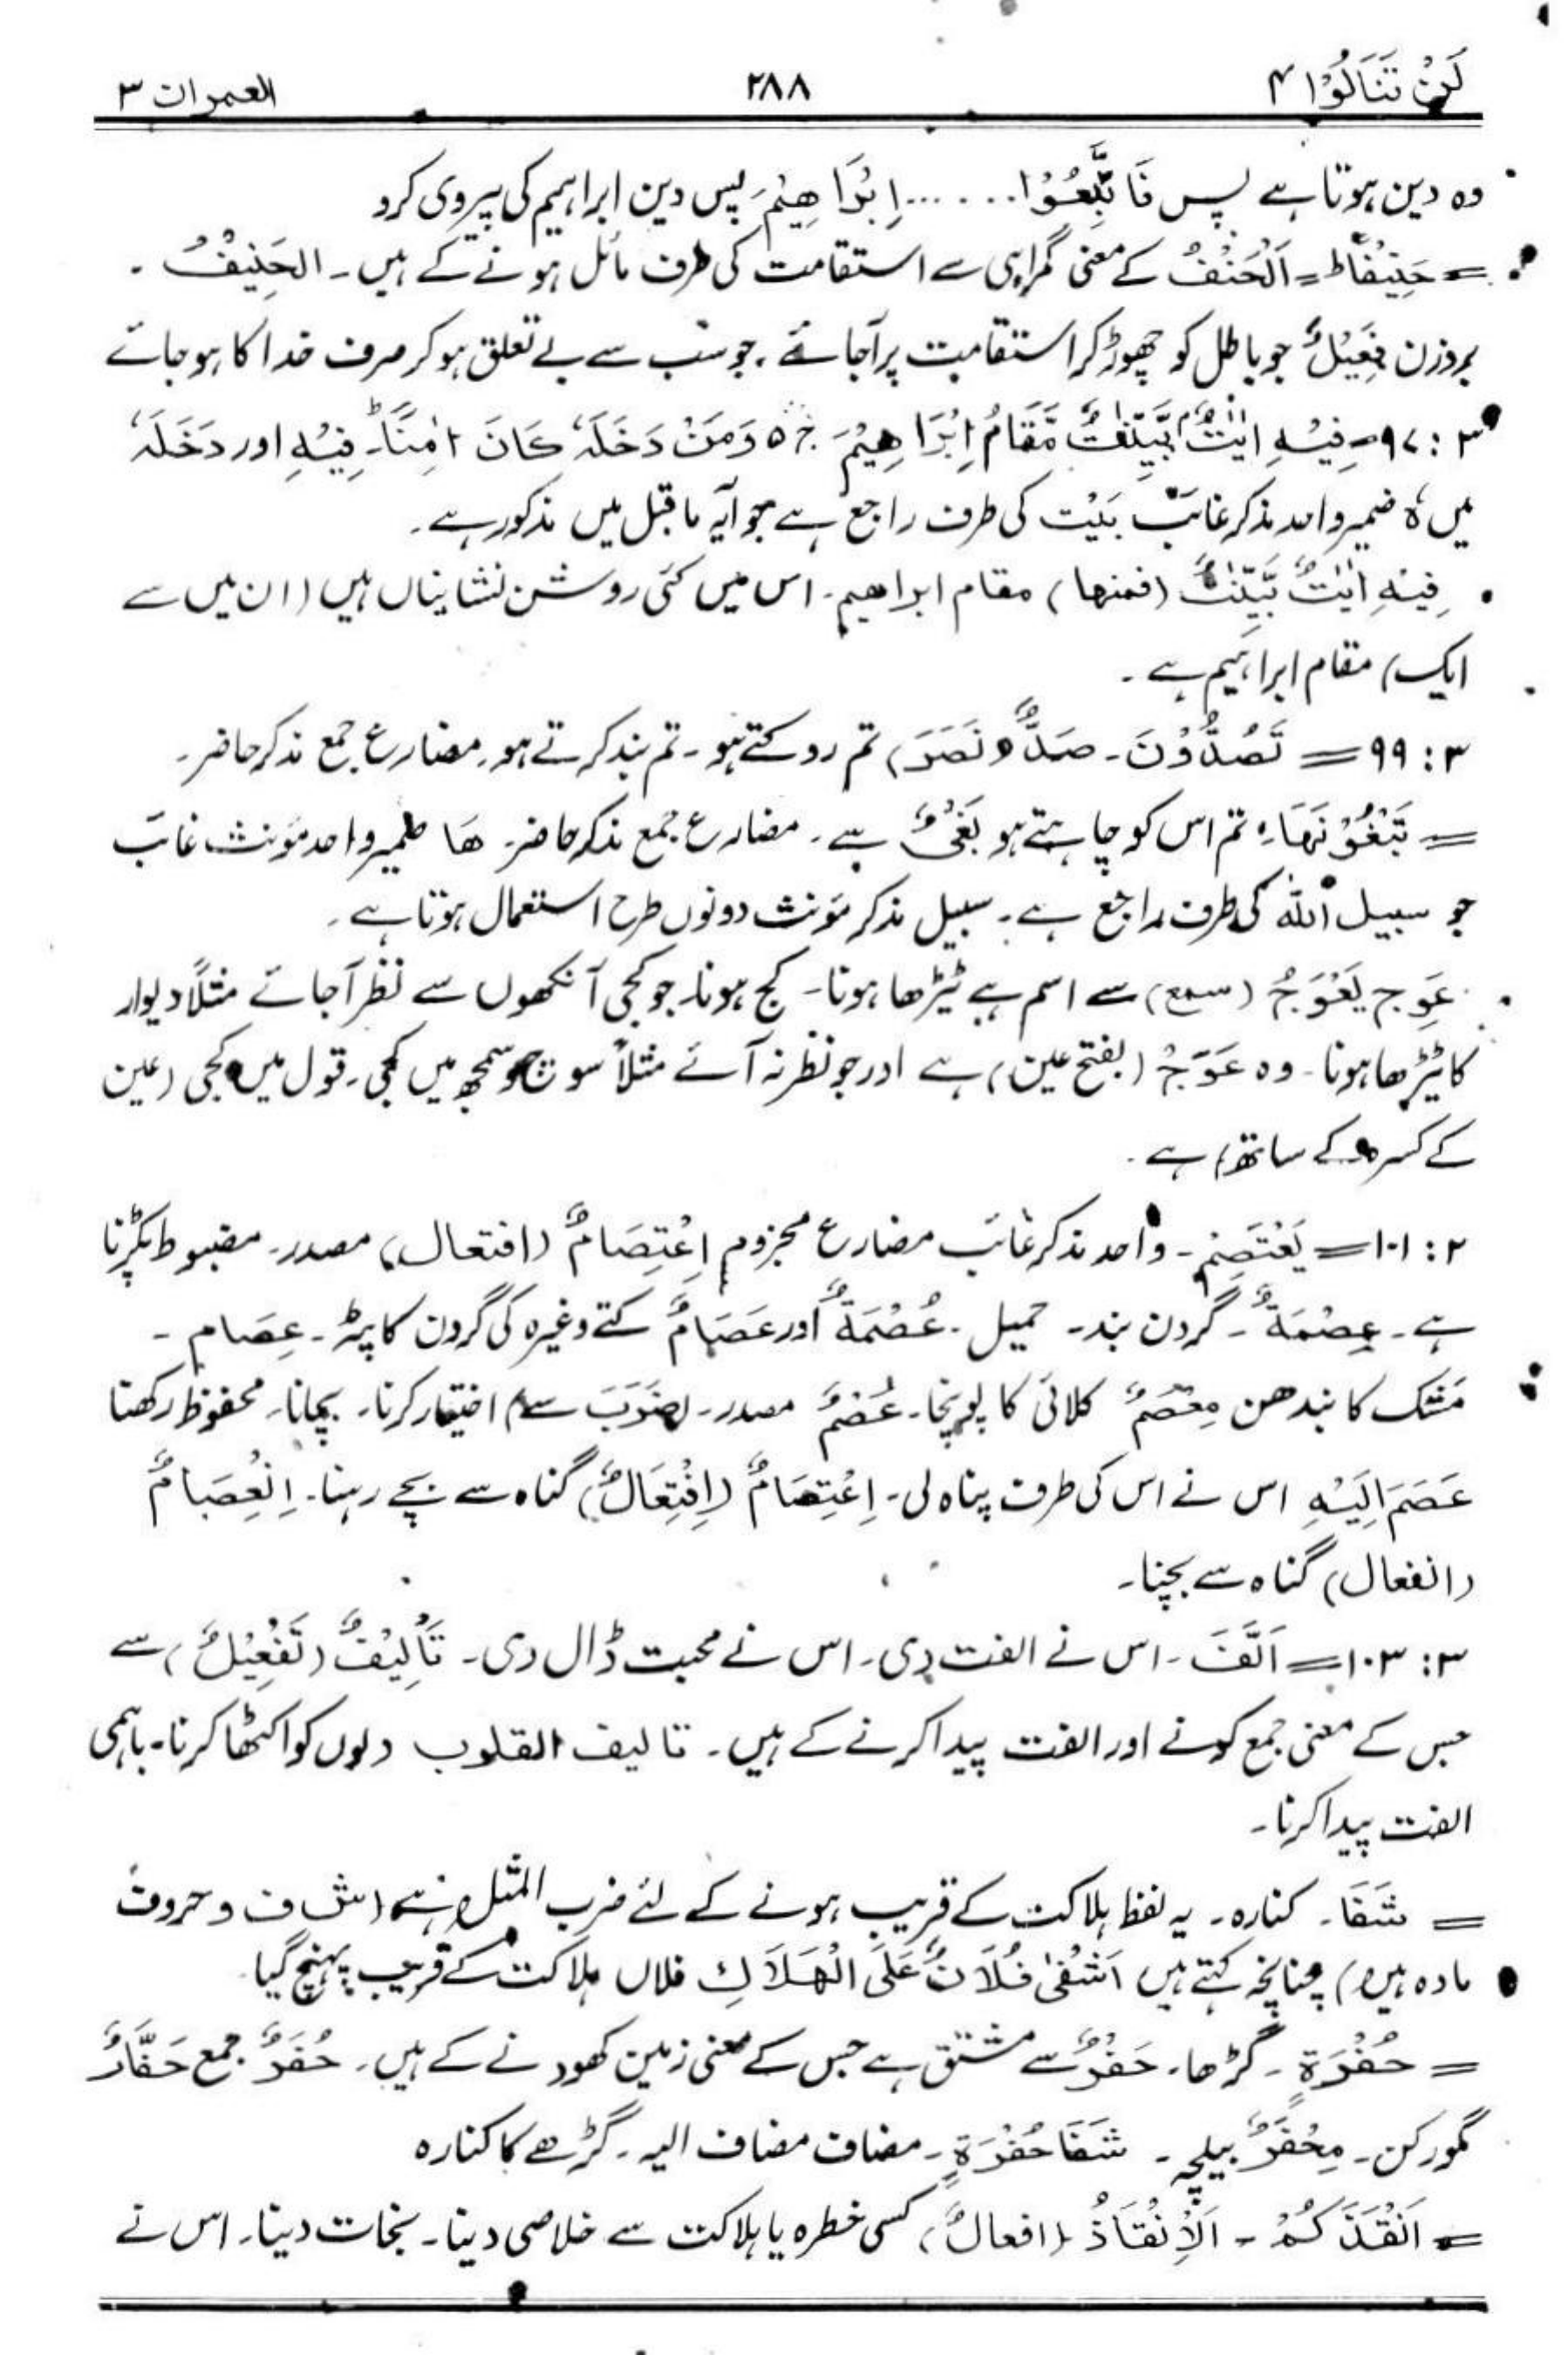 لَنْ تَنَالُوْا ۴ ۲۸۸ العمران ۳
وہ دین ہوتا ہے پس فَاتَّبِعُوْا......اِبْرَاهِیْمَ پس دین ابراہیم کی پیروی کرو
= حَنِیْفًا ط = اَلْحَنْفُ کے معنی گمراہی سے استقامت کی طرف مائل ہونے کے ہیں۔ الحَنِیْفُ ۔
بروزن فَعِیْلٌ جو باطل کو چھوڑ کر استقامت پر آجائے ۔ جو سب سے بے تعلق ہو کر صرف خدا کا ہو جائے
۳ : ۹۷ = فِیْهِ اٰیٰتٌۢ بَیِّنٰتٌ مَّقَامُ اِبْرَاهِیْمَ ۵ وَمَنْ دَخَلَهٗ كَانَ اٰمِنًا ط۔ فِیْهِ اور دَخَلَهٗ
میں ہٗ ضمیر واحد مذکر غائب بَیْت کی طرف راجع ہے جو آیہ ماقبل میں مذکور ہے۔
فِیْهِ اٰیٰتٌۢ بَیِّنٰتٌ (فمنها) مقام ابراهیم۔ اس میں کئی روشن نشانیاں ہیں (ان میں سے
ایک) مقام ابراہیم ہے ۔
۳ : ۹۹ = تَصُدُّوْنَ۔ صَدٌّ وَنَصَرَ) تم روکتے ہو۔ تم بند کرتے ہو۔ مضارع جمع مذکر حاضر۔
= تَبْغُوْنَهَا۔ تم اس کو چاہتے ہو بَغْیٌ سے۔ مضارع جمع مذکر حاضر۔ هَا ضمیر واحد مؤنث غائب
جو سبیل اللہ کی طرف راجع ہے۔ سبیل مذکر مؤنث دونوں طرح استعمال ہوتا ہے ۔
عَوِجَ یَعْوَجُ (سمع) سے اسم ہے ٹیڑھا ہونا۔ کج ہونا۔ جو کجی آنکھوں سے نظر آجائے مثلاً دیوار
کا ٹیڑھا ہونا۔ وہ عَوَجٌ (بفتح عین) ہے اور جو نظر نہ آئے مثلاً سوچ سمجھ میں کجی۔ قول میں کجی (عین
کے کسرہ کے ساتھ) ہے ۔
۲ : ۱۰۱ = یَعْتَصِمْ۔ واحد مذکر غائب مضارع مجزوم اِعْتِصَامٌ (افتعال) مصدر۔ مضبوط پکڑنا
ہے ۔ عِصْمَةٌ ۔ گردن بند۔ حمیل ۔ عُصْمَةٌ اور عَصَامٌ کتے وغیرہ کی گردن کا پٹہ ۔ عِصَام ۔
مَشک کا بندھن مِعْصَمٌ کلائی کا پہونچا۔ عُصْمٌ مصدر۔ ضَرَبَ سے) اختیار کرنا۔ بچانا۔ محفوظ رکھنا
عَصَمَ اِلَیْهِ اس نے اس کی طرف پناہ لی۔ اِعْتِصَامٌ (اِفْتِعَالٌ) گناہ سے بچے رہنا۔ اِنْعِصَامٌ
(انفعال) گناہ سے بچنا۔
۳ : ۱۰۳ = اَلَّفَ ۔ اس نے الفت دی۔ اس نے محبت ڈال دی۔ تَاْلِیْفٌ (تَفْعِیْلٌ) سے
جس کے معنی جمع کرنے اور الفت پیدا کرنے کے ہیں۔ تالیف القلوب دلوں کو اکٹھا کرنا۔ باہمی
الفت پیدا کرنا۔
= شَفَا۔ کنارہ۔ یہ لفظ ہلاکت کے قریب ہونے کے لئے ضرب المثل ہے (ش ف و حروف
مادہ ہیں) چنانچہ کہتے ہیں اَشْفٰی فُلَانٌ عَلَی الْهَلَاكِ فلاں ہلاکت کے قریب پہنچ گیا۔
= حُفْرَةٍ ۔ گڑھا۔ حَفْرٌ سے مشتق ہے جس کے معنی زمین کھودنے کے ہیں۔ حُفَرٌ جمع حَفَّارٌ
گورکن۔ مِحْفَرٌ بیلچہ ۔ شَفَا حُفْرَةٍ ۔ مضاف مضاف الیہ ۔ گڑھے کا کنارہ
= اَنْقَذَكُمْ ۔ اَلْاِنْقَاذُ (افعالٌ) کسی خطرہ یا ہلاکت سے خلاصی دینا۔ نجات دینا۔ اس نے